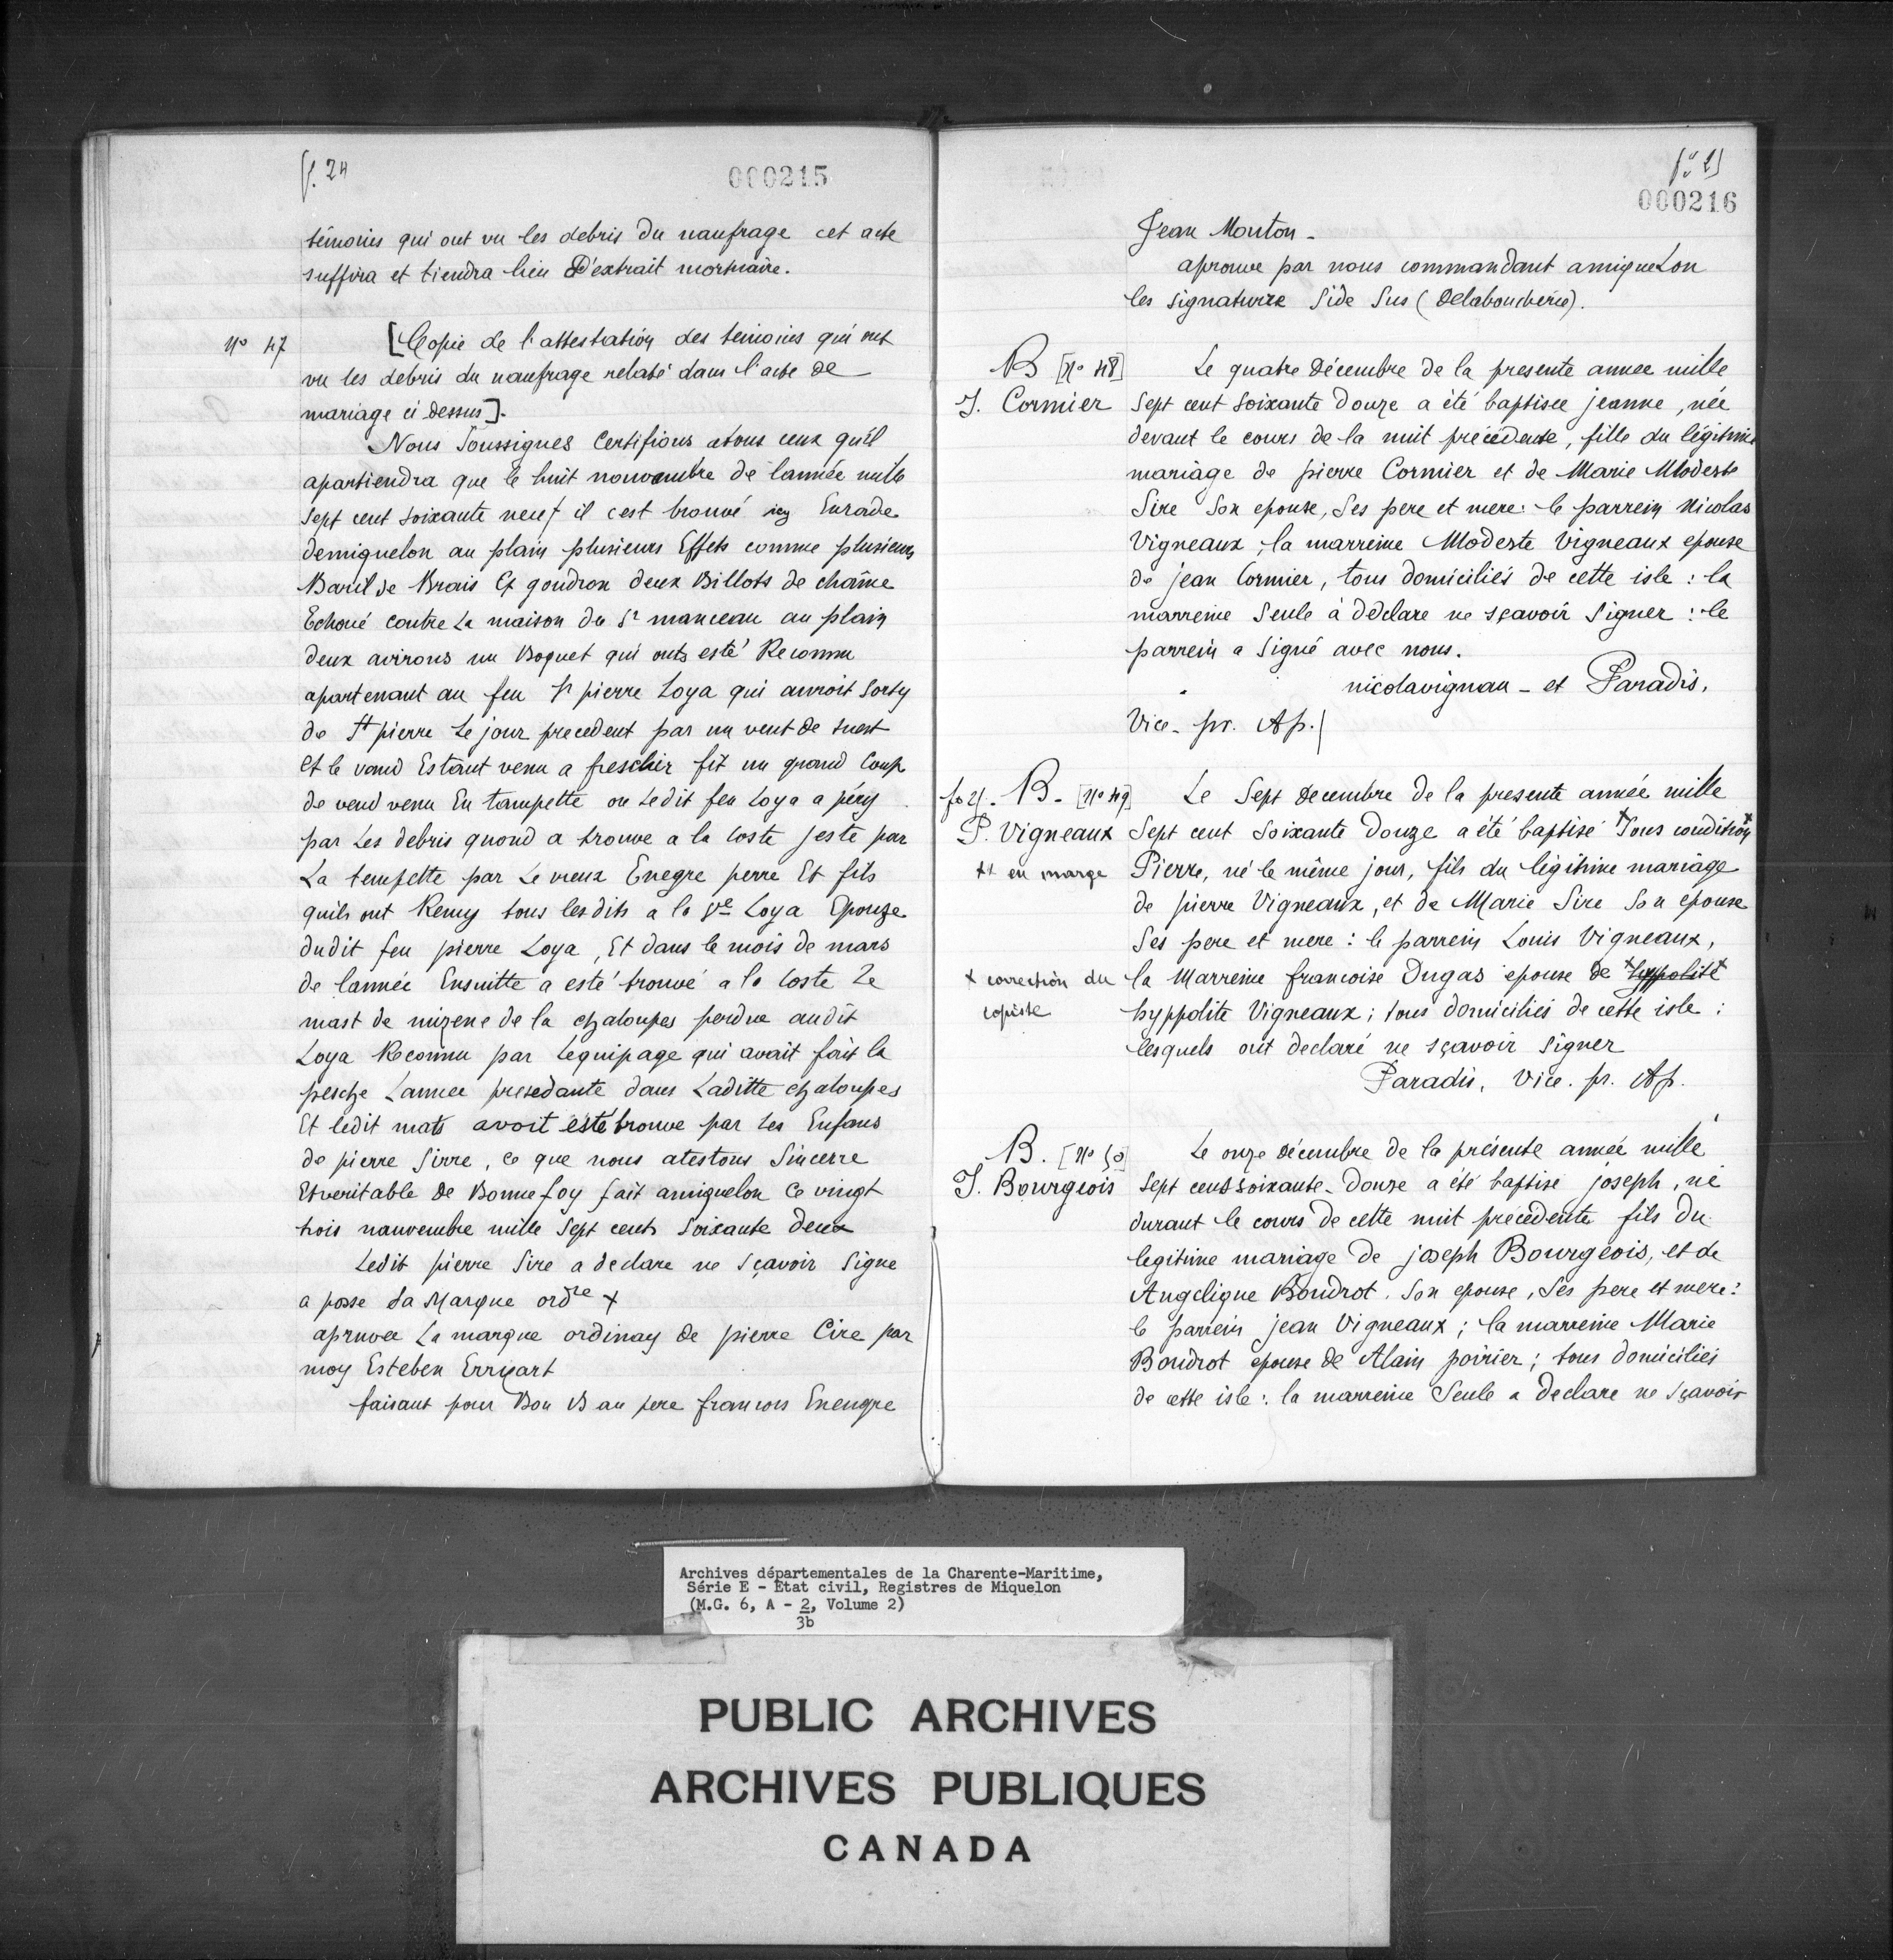 f. 24
000215
témoins qui ont vu les debris du naufrage cet acte
suffira et tiendra lieu D'extrait mortuaire.
No 47
[Copie de l'attestation des temoins qui ont
vu les debris du naufrage relaté dans l'acte de
mariage ci dessus].
Nous Soussignes Certifions atous ceux qu'il
apartiendra que le huit nouvembre de lannée mille
Sept cent soixante neuf il cest trouvé icy Enrade
demiquelon au plain plusieurs Effets comme plusieurs
Baril de Brais Et goudron deux Billots de chaîne
Echoué contre La maison du Sr manceau au plain
deux avirons un Boquet qui onts esté Reconnu
apartenant au feu Sr pierre Loya qui auroit Sorty
de St pierre Le jour precedent par un vent de suest
Et le vand Estant venu a freschir fit un grand Coup
de vend venu En tampette ou Ledit feu Loya a péry
par Les debris quond a trouve a la Coste jesté par
La tempette par Le vieux Enegre perre Et fils
quils ont Remy tous lesdits a la Ve Loya Epouze
dudit feu pierre Loya, Et dans le mois de mars
de lannée Ensuitte a esté trouvé a la Coste Le
mast de mizene de la chaloupes perdue audit
Loya Reconnu par Lequipage qui avait fait la
pesche Lannee presedante dans Laditte chaloupes
Et ledit mats avoit esté trouve par Les Enfans
de pierre Sirre, ce que nous atestons Sincerre
Etveritable de Bonne foy fait amiquelon Ce vingt
trois nauvembre mille Sept cents Soixante deux
Ledit pierre Sire a declare ne Sçavoir Signe
a posse Sa Marque ordre +
apruvee La marque ordinay de pierre Cire par
moy Esteben Erryart
faisant pour Bon B au pere francois Enengre
000216
Jean Mouton -
aprouve par nous commandant amiqueLon
les Signature Side Sus (Delaboucherie).
B [No 48]
J. Cormier
Le quatre Décembre de la presente annee mille
Sept cent Soixante Douze a été baptisee jeanne, née
devant le cours de la nuit précédente, fille du légitime
mariage de pierre Cormier et de Marie Modeste
Sire Son epouse, Ses pere et mere: le parrein Nicolas
Vigneaux; la marreine Modeste Vigneaux epouse
de jean Cormier, tous domiciliés de cette isle : la
marreine Seule à déclare ne sçavoir Signer : le
parrein a Signé avec nous.
nicolavignau - et Paradis,
Vice. pr. Ap.
fo 21. B. [No 49]
P. Vigneaux
++ en marge
Le Sept Decembre de la presente année mille
Sept cent Soixante Douze a été baptisé +Sous condition+
Pierre, né le même jour, fils du légitime mariage
de pierre Vigneaux, et de Marie Sire Son épouse
Ses pere et mere : le parrein Louis Vigneaux,
+ correction du
copiste
la Marreine francoise Dugas epouse de +hyppolite+
hyppolite Vigneaux; tous domiciliés de cette isle :
lesquels ont declaré ne sçavoir Signer
Paradis, Vice. pr. Ap.
B. [No 50]
J. Bourgeois
Le onze Décembre de la présente année mille
Sept cent soixante-Douze a été baptisé joseph, né
durant le cours de cette nuit précédente fils Du
legitime mariage de joseph Bourgeois, et de
Angelique Boudrot. Son epouse, Ses pere et mere:
le parrein jean Vigneaux; la marreine Marie
Boudrot epouse de Alain poirier; tous domiciliés
de cette isle : la marreine Seule a declare ne Sçavoir
Archives départementales de la Charente-Maritime,
Série E - État civil, Registres de Miquelon
(M.G. 6, A - 2, Volume 2)
3b
PUBLIC ARCHIVES
ARCHIVES PUBLIQUES
CANADA